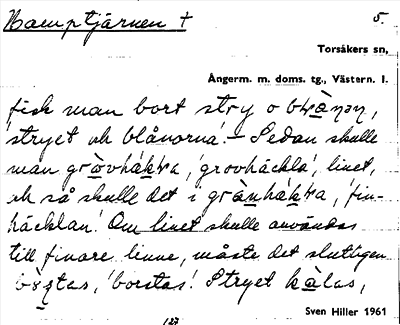 Hamptjärnen † 5.
Torsåkers sn,
Ångerm. m. doms. tg., Västern. l.
fick man bort stry o
'stryet och blånorna'. – Sedan skulle
man grovhäkka, 'grovhäckla', linet,
och så skulle det i 'fin-
häcklan'. Om linet skulle användas
till finare linne, måste det slutligen
'borstas'. Stryet
Sven Hiller 1961
127